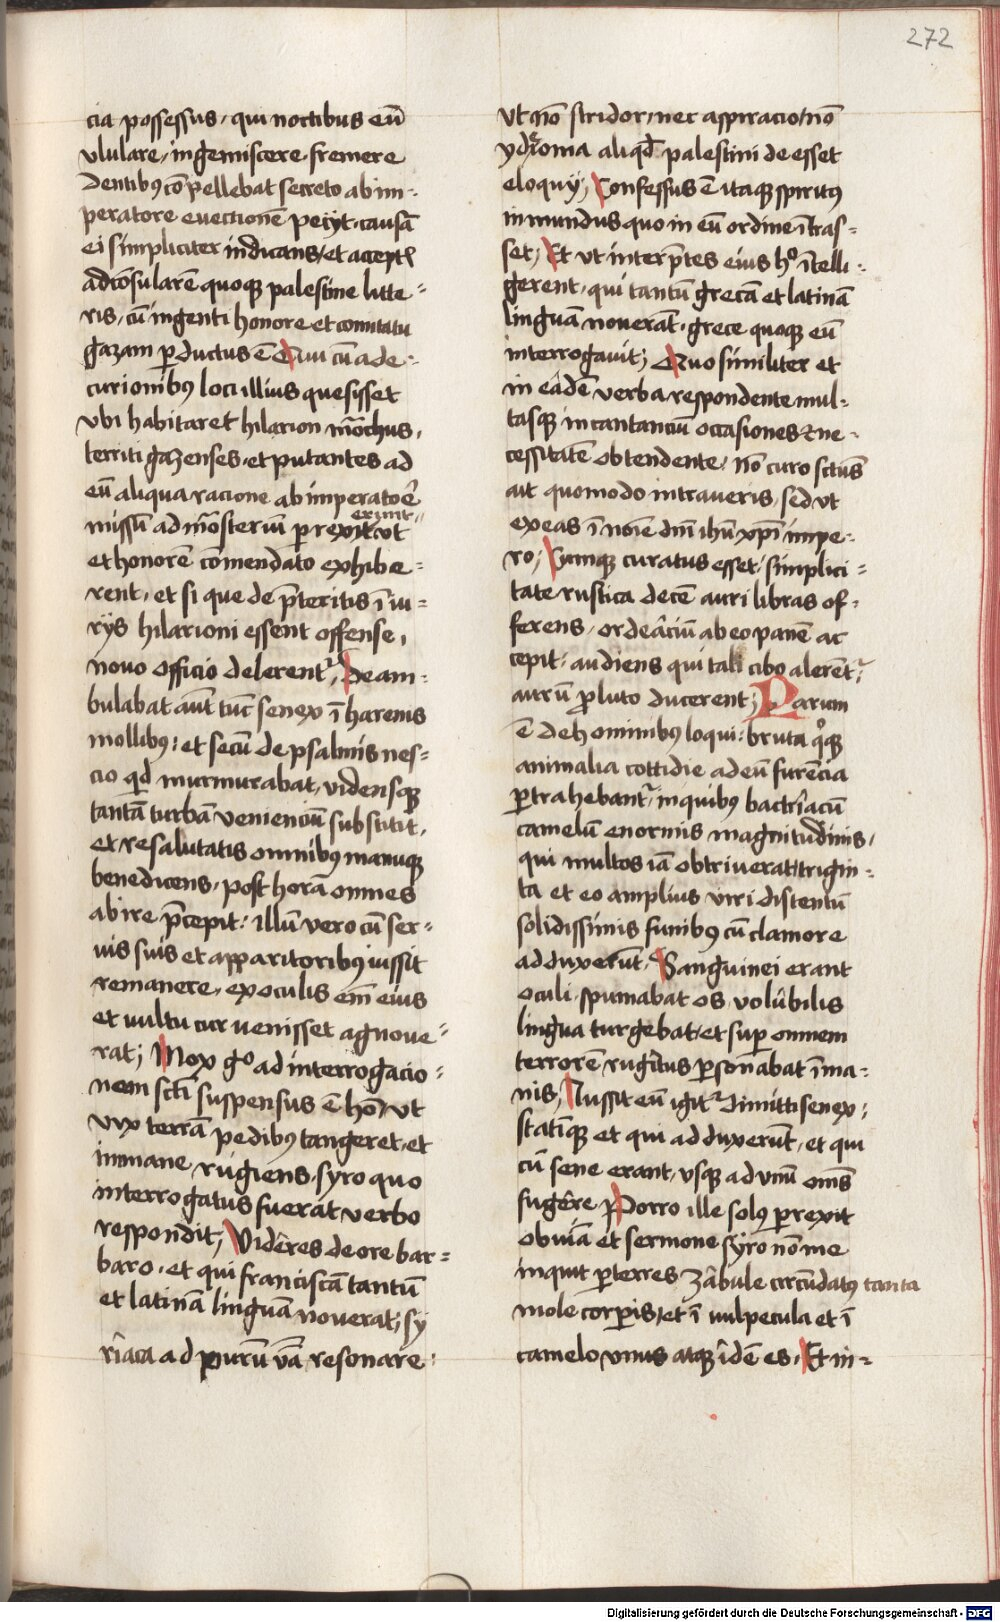 272
cia possessus, qui noctibus eū
ululare, ingemiscere fremere
dentibꝰ cōpellebat secreto ab im-
peratore evectionē peciit causā
ei simpliciter indicans, et acceptꝭ
ad cōsularē quoqꝫ palestine litte-
ris, cū ingenti honore et comitatu
gazam ꝑductus ē Qui cū a de-
curionibꝰ loci illius quesisset
ubi habitaret hilarion mōchus,
territi gazenses, et putantes ad
eū aliqua racione ab imperatoē
missū ad mōsteriū
et honorē comendato exhibe-
rent, et si que de p̄teritis ī iu-
rijs hilarioni essent offense,
novo officio delerentᷣ, Deam-
bulabat aūt tūc senex ī harenis
mollibꝰ, et secū de psalmis nes-
cio qd̄ murmurabat, vidensqꝫ
tantā turbā veniēciū substitit,
et resalutatis omnibꝰ manuqꝫ
benedicens, post horā omnes
abire p̄cepit: illū vero cū ser-
vis suis et apparitoribꝰ iussit
remanere, ex oculis em̄ eius
et vultu cur venisset agnove-
rat; Mox gͦ ad interrogacio-
nem scti suspensus ē hō, ut
vix terrā pedibꝰ tangeret, et
inmane rugiens, syro quo
interrogatus fuerat verbo
respondit; Videres de ore bar-
baro, et qui franciscā tantū
et latinā linguā noverat, sy
riaca ad purū v̄ba resonare:
ut nō stridor, nec aspiracio, nō
ydioma aliqd̄ palestini deesset
eloquij; Confessus ē itaqꝫ spiritꝰ
inmundus quo in eū ordine ītras-
set; Et ut interp̄tes eius hͦ ītelli-
gerent, qui tantū grecā et latinā
linguā noverāt, grece quoqꝫ eū
interrogavit; Quo similiter et
in eādē verba respondente mul-
tasqꝫ incantanciū occasiones et ne-
cessitatē obtendente, nō curo sctūs
ait quomodo intraveris, sed ut
exeas ī noīe dn̄i ihū xp̄i impe-
ro; Cumqꝫ curatus esset, simplici-
tate rustica decē auri libras of-
ferens, ordeāciū ab eo panē ac
cepit, audiens qui tali cibo alerētᷣ
aurū pro luto ducerent; Parum
ē de hominibꝰ loqui: bruta qͦqꝫ
animalia cottidie ad eū furēcia
ꝑtrahebantᷣ, in quibꝰ bactriacū
camelū enormis magnitudinis,
qui multos iā obtriverat, trigin-
ta et eo amplius viri distentū
solidissimis funibꝰ cū clamore
adduxerūt, Sanguinei erant
oculi, spumabat os, volubilis
lingua turgebat, et suꝑ omnem
terrorē rugitus ꝑsonabat īma-
nis, Iussit eū igitᷣ dimitti senex;
statīqꝫ et qui adduxerūt, et qui
cū sene erant, usqꝫ ad unū om̄s
fugere Porro ille solꝰ ꝑrexit
obviā et sermone syro nō me
inquit ꝑterres zabule circūdatꝰ tanta
mole corporis, et ī vulpecula et ī
camelo unus atqꝫ idē es, Et in-
Digitalisierung gefördert durch die Deutsche Forschungsgemeinschaft - DFG